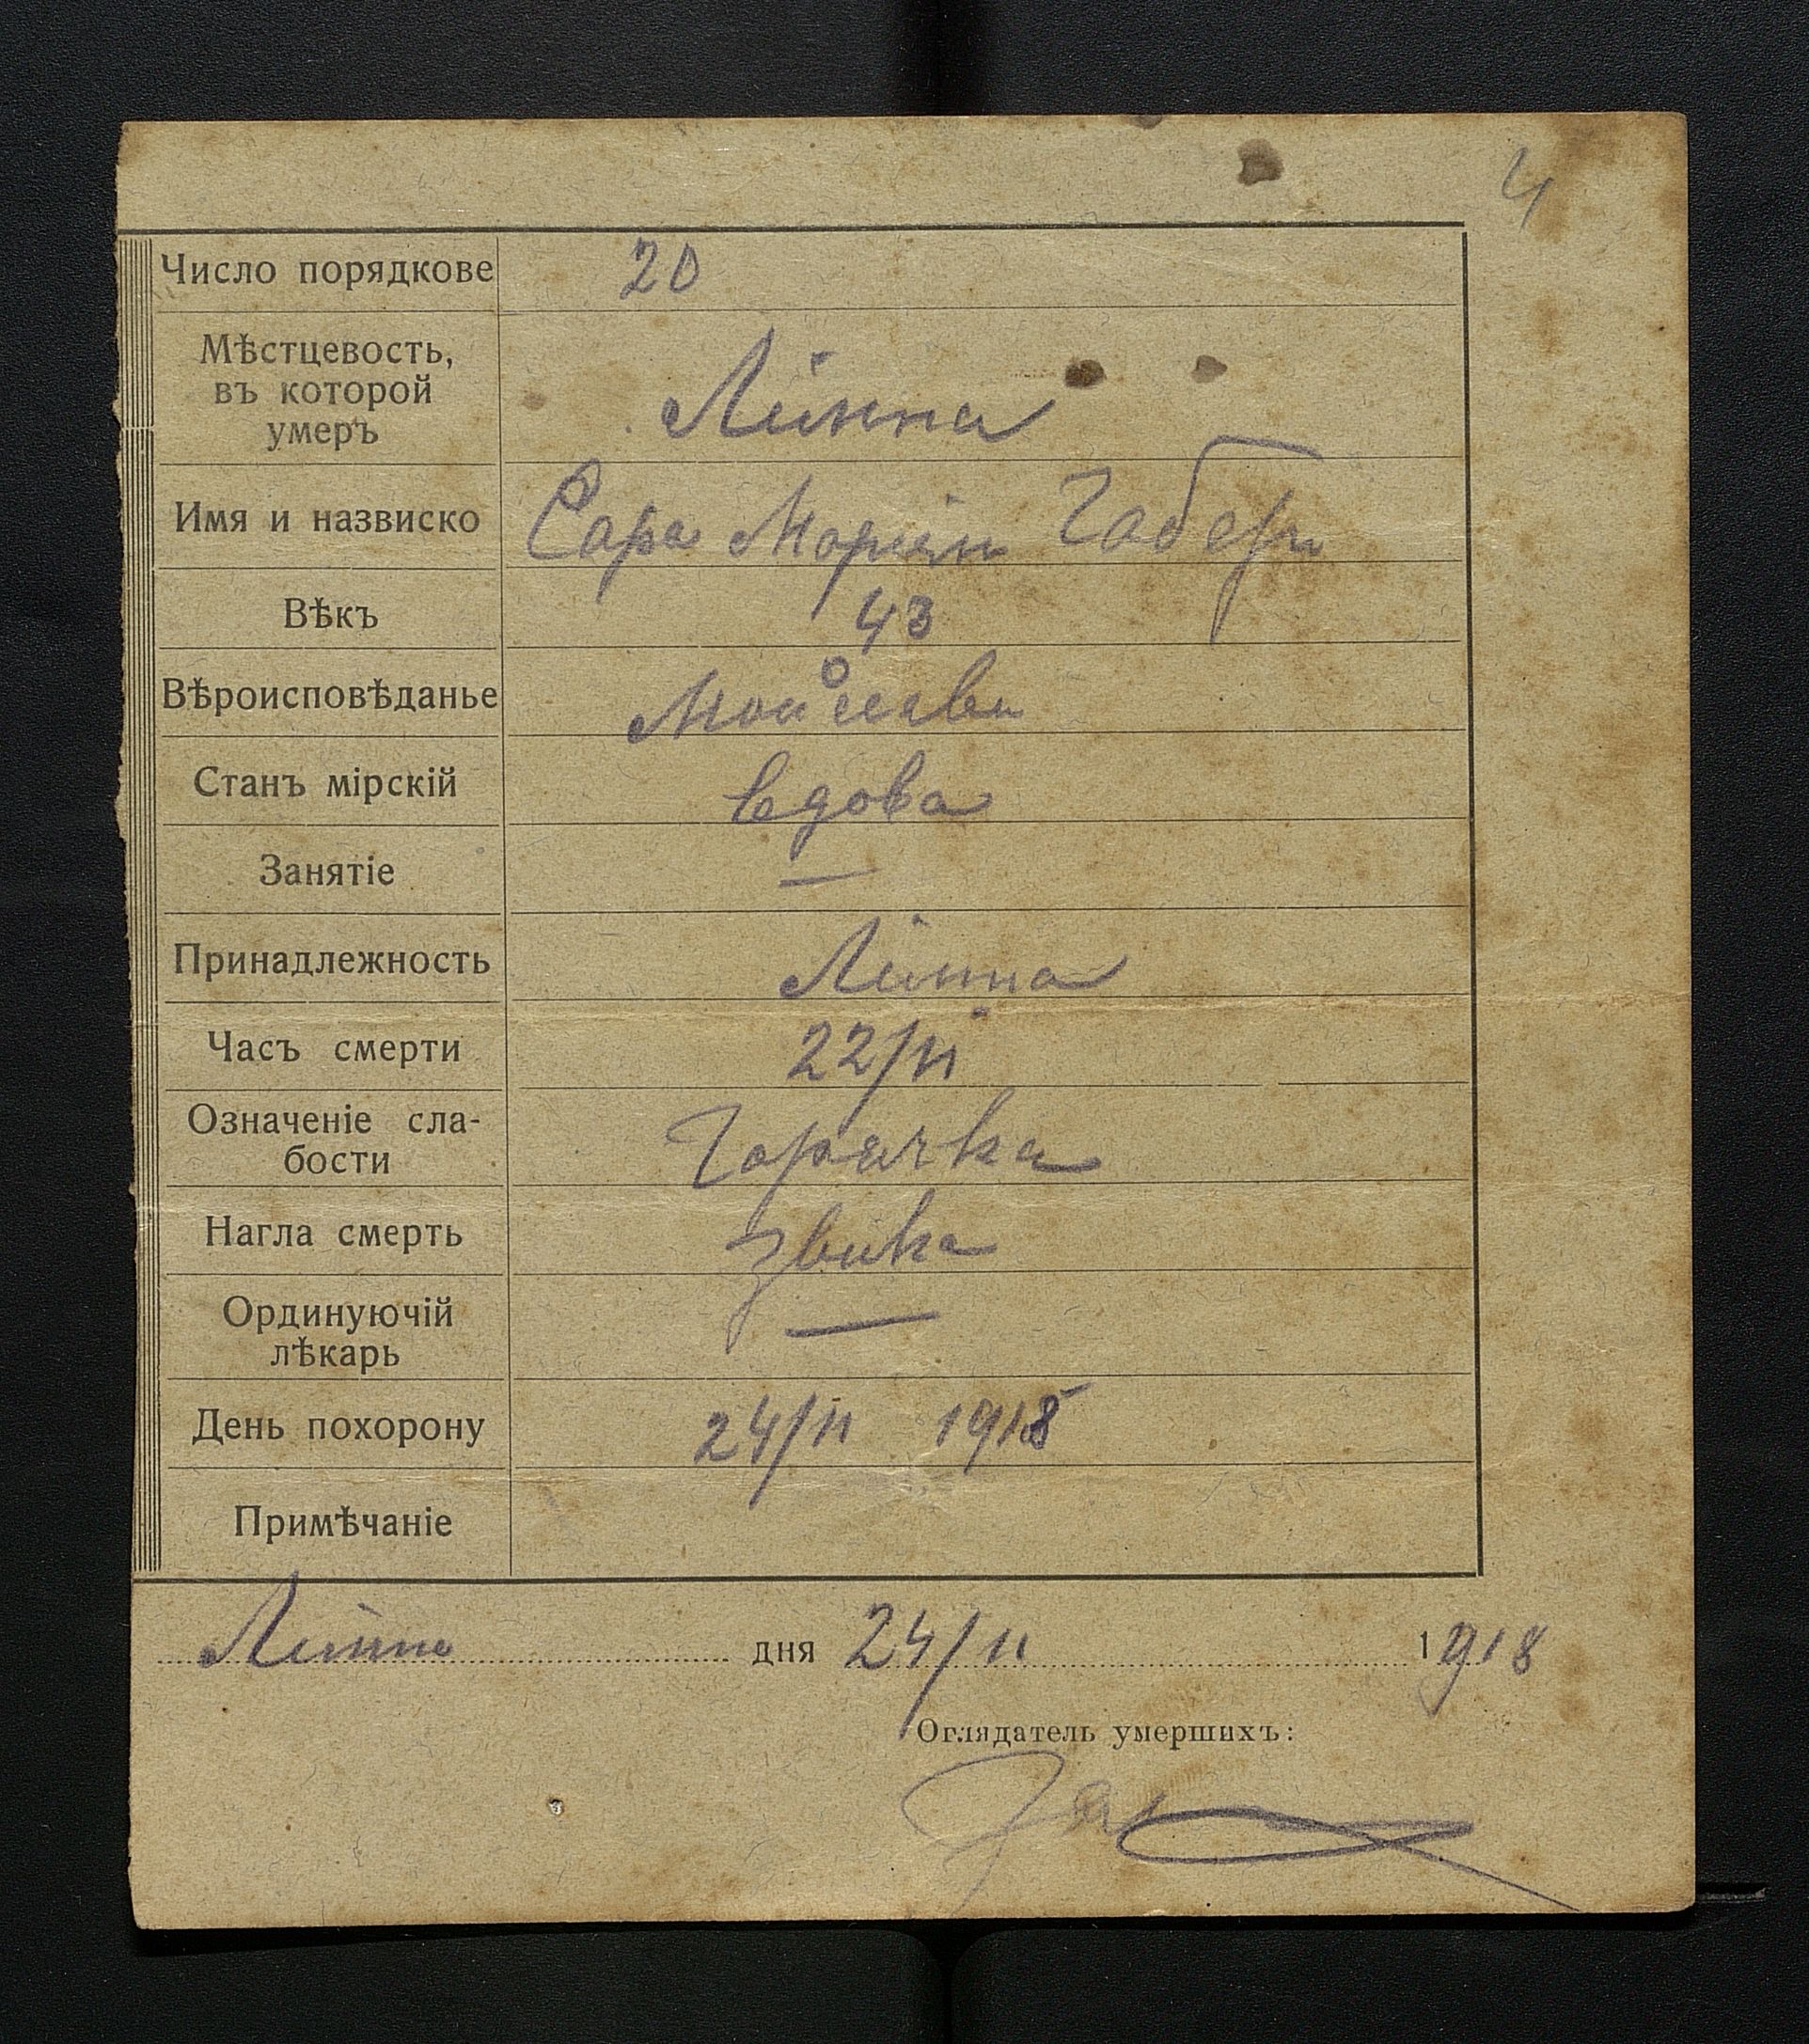 4
Число порядкове 20
Мѣстцевость,
въ которой
умеръ
Лїнна
Имя и назвиско Сара Марієм Габер
Вѣкъ 43
Вѣроисповѣданье Мойсеева
Станъ мірскій вдова
Занятіе —
Принадлежность Лїнна
Часъ смерти 22/11
Означеніе сла-
бости
Горячка
Нагла смерть звика
Ординуючій
лѣкарь
—
День похорону 24/11 1918
Примѣчаніе
Лїнна дня 24/11 1918
Оглядатель умершихъ: